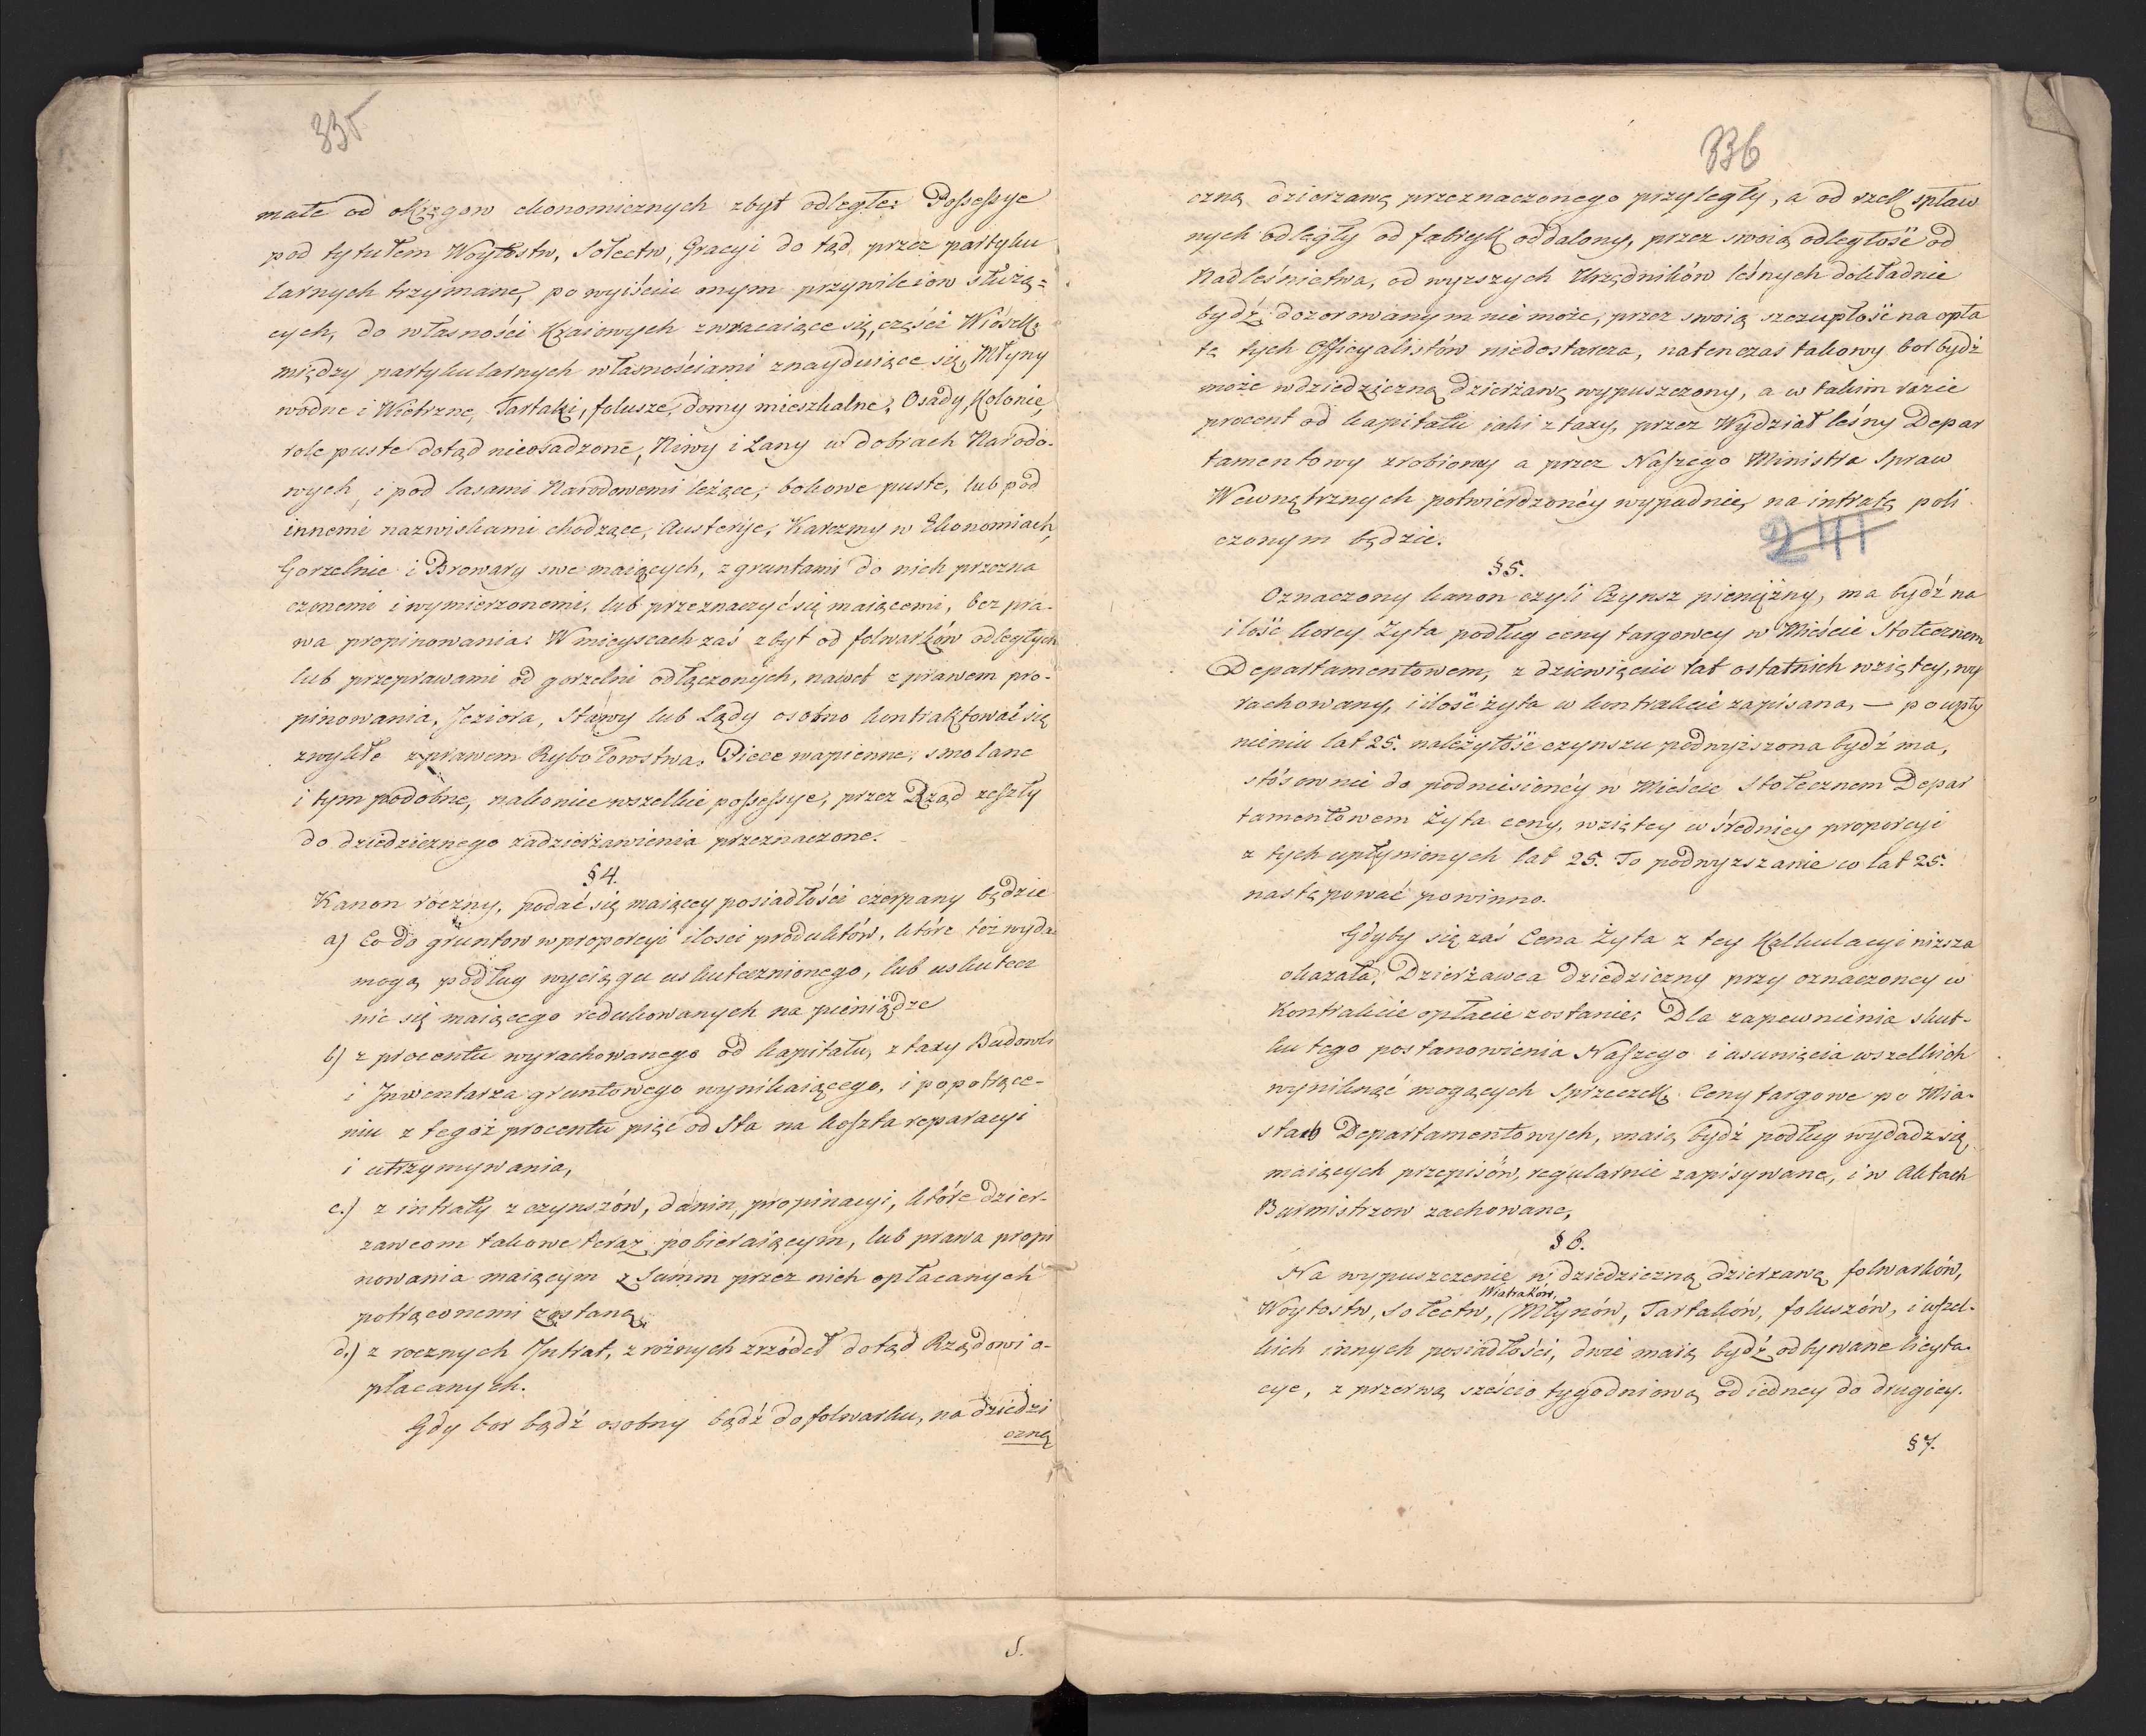 335
małe od okręgow ekonomicznych zbyt odległe: Possessye
pod tytułem Woytostw, Sołectw, Gracyi do tąd przez partyku
larnych trzymane, po wyiściu onym przywileiow służą=
cych, do własności Kraiowych zwracaiące się, części Wiosek
między partykularnych własnościami znayduiące się, Młyny
wodne i Wietrzne, Tartaki, folusze, domy mieszkalne, Osady, Kolonie,
role puste dotąd nieosadzone, Niwy i Łany w dobrach Narodo-
wych, i pod lasami Narodowemi leżące, bokowe puste, lub pod
innemi nazwiskami chodzące, Austerye, Karczmy w Ekonomiach,
Gorzelnie i Browary swe maiących, z gruntami do nich przezna
czonemi i wymierzonemi, lub przeznaczyć się maiącemi, bez pra-
wa propinowania: W mieyscach zaś zbyt od folwarków odległych
lub przeprawami od gorzelni odłączonych, nawet z prawem pro-
pinowania, Jeziora, Stawy lub Lądy osobno kontraktować się
zwykłe z prawem Rybołowstwa. Piece wapienne, smolane
i tym podobne, nakoniec wszelkie possessye, przez Rząd zeszły
do dziedzicznego zadzierżawienia przeznaczone.
§ 4.
Kanon roczny, podać się maiącey posiadłości czerpany będzie
a) Co do gruntow w proporcyi ilosci produktów, które też wyda
mogą podług wyciągu uskutecznionego, lub uskutecz
nić się maiącego redukowanych na pieniądze
b) z procentu wyrachowanego od kapitału, z taxy Budowli
i Jnwentarza gruntowego wynikaiącego, i po potrące-
niu z tegoż procentu pięć od Sta na koszta reparacyi
i utrzymywania,
c.) z intraty z czynszów, danin, propinacyi, które dzier-
zawcom takowe teraz pobieraiącym, lub prawa propi
nowania maiącym z Summ przez nich opłacanych
potrąconemi zostaną,
d.) z rocznych Jntrat, z rożnych zrzódeł dotąd Rządowi o-
płacanych.
Gdy bor bądź osobny bądź do folwarku, na dziedzi
czną
S.
336
czną dzierzawę przeznaczonego przyległy, a od rzek spław
nych odległy od fabryk oddalony, przez swoią odległość od
Nadleśnictwa, od wyzszych Urzędników leśnych dokładnie
bydź dozorowanym nie może, przez swoią szczupłość na opła
tę tych Officyalistów niedostarcza, natenczas takowy bor bydź
może w dziedziczną dzierżawę wypuszczony, a w takim razie
procent od kapitału iaki z taxy, przez Wydział leśny Depar
tamentowy zrobioney a przez Naszego Ministra Spraw
Wewnętrznych potwierdzonéy wypadnie, na intratę poli
czonym będzie.
241
§ 5.
Oznaczony kanon czyli Czynsz pieniężny, ma bydź na
ilość korcy Żyta podług ceny targowey w Mieście Stołecznem
Departamentowem, z dziewięciu lat ostatnich wziętey, wy
rachowany, i ilość żyta w kontrakcie zapisana, — po upły
nieniu lat 25. należytość czynszu podwyższona bydź ma,
stósownie do podniesionéy w Mieście Stołecznem Depar
tamentowem Żyta ceny, wziętey w średniey proporcyi
z tych upłynionych lat 25. To podwyzszanie co lat 25.
następować powinno.
Gdyby się zaś Cena Żyta z tey Kalkulacyi nizsza
okazała, Dzierżawca Dziedziczny przy oznaczoney w
Kontrakcie opłacie zostanie: Dla zapewnienia skut-
ku tego postanowienia Naszego i usunięcia wszelkich
wyniknąć mogących Sprzeczek. Ceny targowe po Mia-
stach Departamentowych, maią bydź podług wydadz się
maiących przepisów, regularnie zapisywane, i w Aktach
Burmistrzow zachowane,
§ 6.
Na wypuszczenie w dziedziczną dzierzawę folwarków,
Wiatraków,
Woytostw, Sołectw, (Młynów, Tartaków, foluszów, i wszel-
kich innych posiadłości, dwie maią bydź odbywane licyta-
cye, z przerwą sześcio tygodniową od iedney do drugiey.
§ 7.